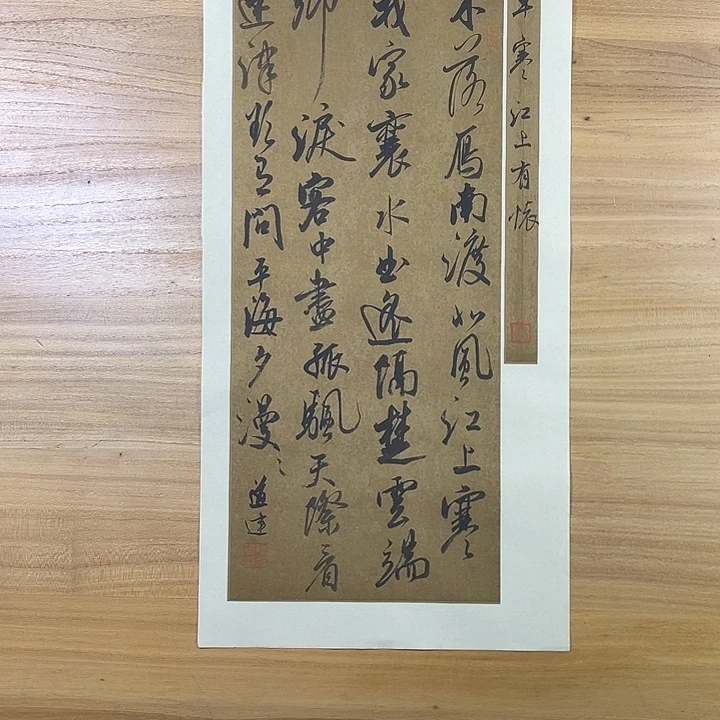 早寒江上有懷
木落鴈南渡北風江上寒
我家襄水曲遙隔楚雲端
鄉淚客中盡孤颿天際看
迷津欲有問平海夕漫〻